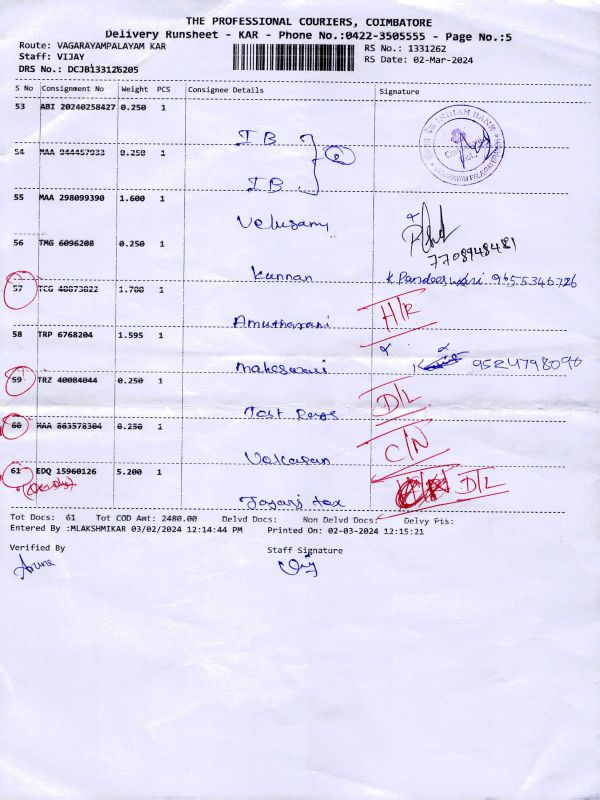 THE PROFESSIONAL COURIERS, COIMBATORE
Delivery Runsheet - KAR - Phone No.:0422-3505555 - Page No.:5
Route: VAGARAYAMPALAYAM KAR
RS No.: 1331262
Staff: VIJAY
RS Date: 02-Mar-2024
DRS No.: DCJB133126205
S No Consignment No Weight PCS Consignee Details Signature
53 ABI 20240258427 0.250 1
IB
INDIAN BANK
54 MAA 944457933 0.250 1
2
IB
55 MAA 298099390 1.600 1
Velusamy
7708948481
56 TMG 6096208 0.250 1
Kannan
K Pandeeswari 9655346726
57 TCG 40873022 1.700 1
Amutharani
H/R
58 TRP 6768204 1.595 1
Maheswari
9524798090
59 TRZ 40084044 0.250 1
D/L
60 MAA 863578304 0.250 1
C/N
61 EDQ 15960126 5.200 1
D/L
Tot Docs: 61 Tot COD Amt: 2480.00 Delvd Docs: Non Delvd Docs: Delvy Pts:
Entered By :MLAKSHMIKAR 03/02/2024 12:14:44 PM Printed On: 02-03-2024 12:15:21
Verified By Staff Signature
Aruna